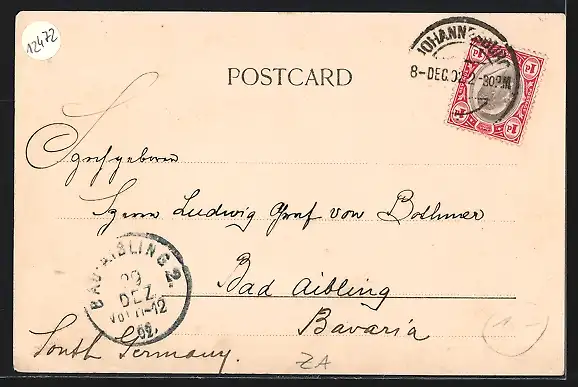 12472
JOHANNESBURG
8-DEC.02 2-30P.M
1d 1d
1d 1d
POSTCARD
Hochgeboren
Herrn Ludwig Graf von Bothmer
BAD-AIBLING 2.
29
DEZ.
11-12
02.
Bad Aibling
Bavaria
South Germany.
ZA
1-